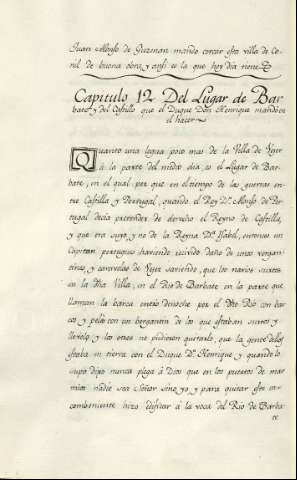 Juan Alonso de Guzman mando cercar esta villa de Co-
nil de buena obra, y ansi es la que hoy dia tiene.
Capitulo 12 Del Lugar de Bar-
bate y del Castillo que el Duque Don Henrique mando en
el hacer
Quanto una legua poco mas de la Villa de Vejer
à la parte del medio dia, es el Lugar de Bar-
bate, en el qual por que en el tiempo de las guerras en-
tre Castilla y Portugal, quando el Rey Dn. Alonso de Por-
tugal decia pertender de derecho el Reyno de Castilla,
y que era suyo y no de la Reyna Dª Isabel, entonces un
Capitan portugues haviendo recivido daño de unos vergan-
tines, y caravelas de Vejer sabiendo, que los navios surtos
en la dha Villa, en el Rio de Barbate en la parte que
llaman la barca entrò denoche por el dho Rio con bar-
cos y peleò con un bergantin de los que estaban surtos y
llevòlo y los otros no pudieron quitarlo, que la gente dellos
estaba en tierra con el Duque Dn. Henrique, y quando lo
supo dixo nunca plega à Dios que en los puertos de mar
mios nadie sea Señor sino yo y para quitar este in-
combeniente hizo edificar à la voca del Rio de Barba
te